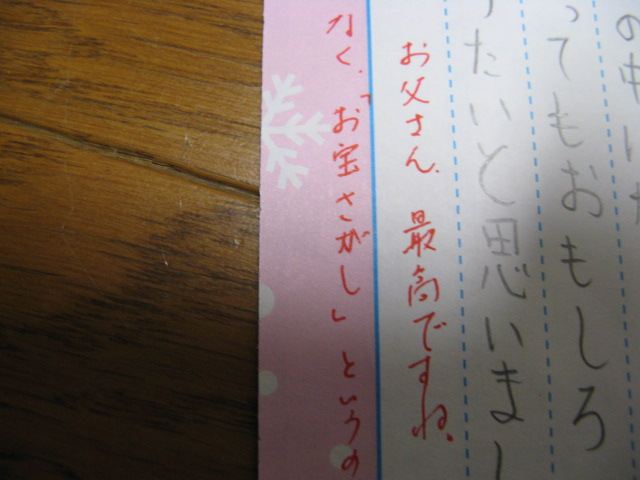 の中に
ってもおもしろ
りたいと思いまし
お父さん、最高ですね。
なく、「お宝さがし」というの